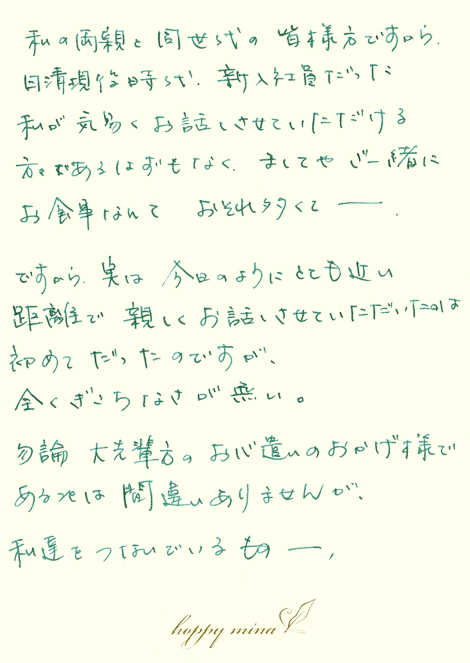 私の両親と同世代の皆様方ですから、
日清現役時代、新入社員だった
私が気易くお話しさせていただける
方々であるはずもなく、ましてやご一緒に
お食事なんて おそれ多くて ――.
ですから、実は今日のようにとても近い
距離で親しくお話しさせていただいたのは
初めてだったのですが、
全くぎこちなさが無い。
勿論 大先輩方のお心遣いのおかげ様で
ある事は間違いありませんが、
私達をつないでいるもの ――、
happy mina